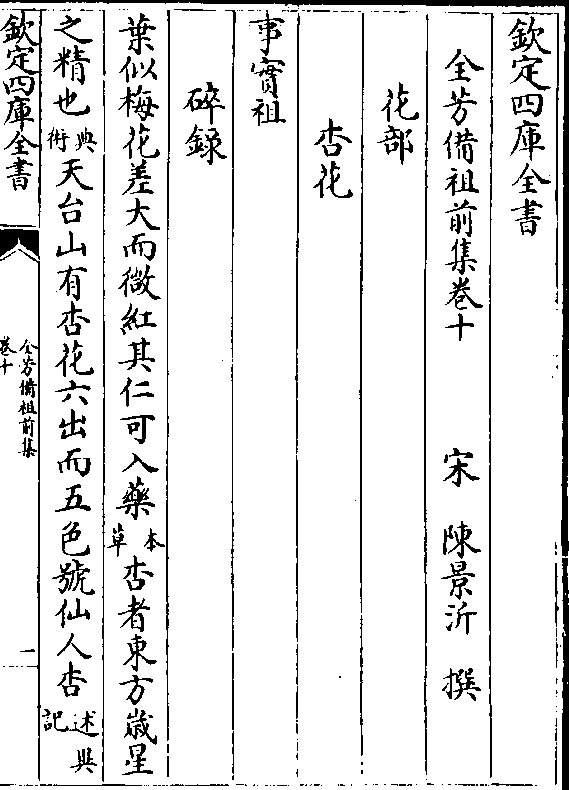 欽定四庫全書
全芳備祖前集巻十 宋 陳景沂 撰
花部
杏花
事實祖
碎録
葉似梅花差大而微紅其仁可入藥本草杏者東方歳星
之精也典術天台山有杏花六出而五色號仙人杏述異記
欽定四庫全書 全芳備祖前集 巻十 一